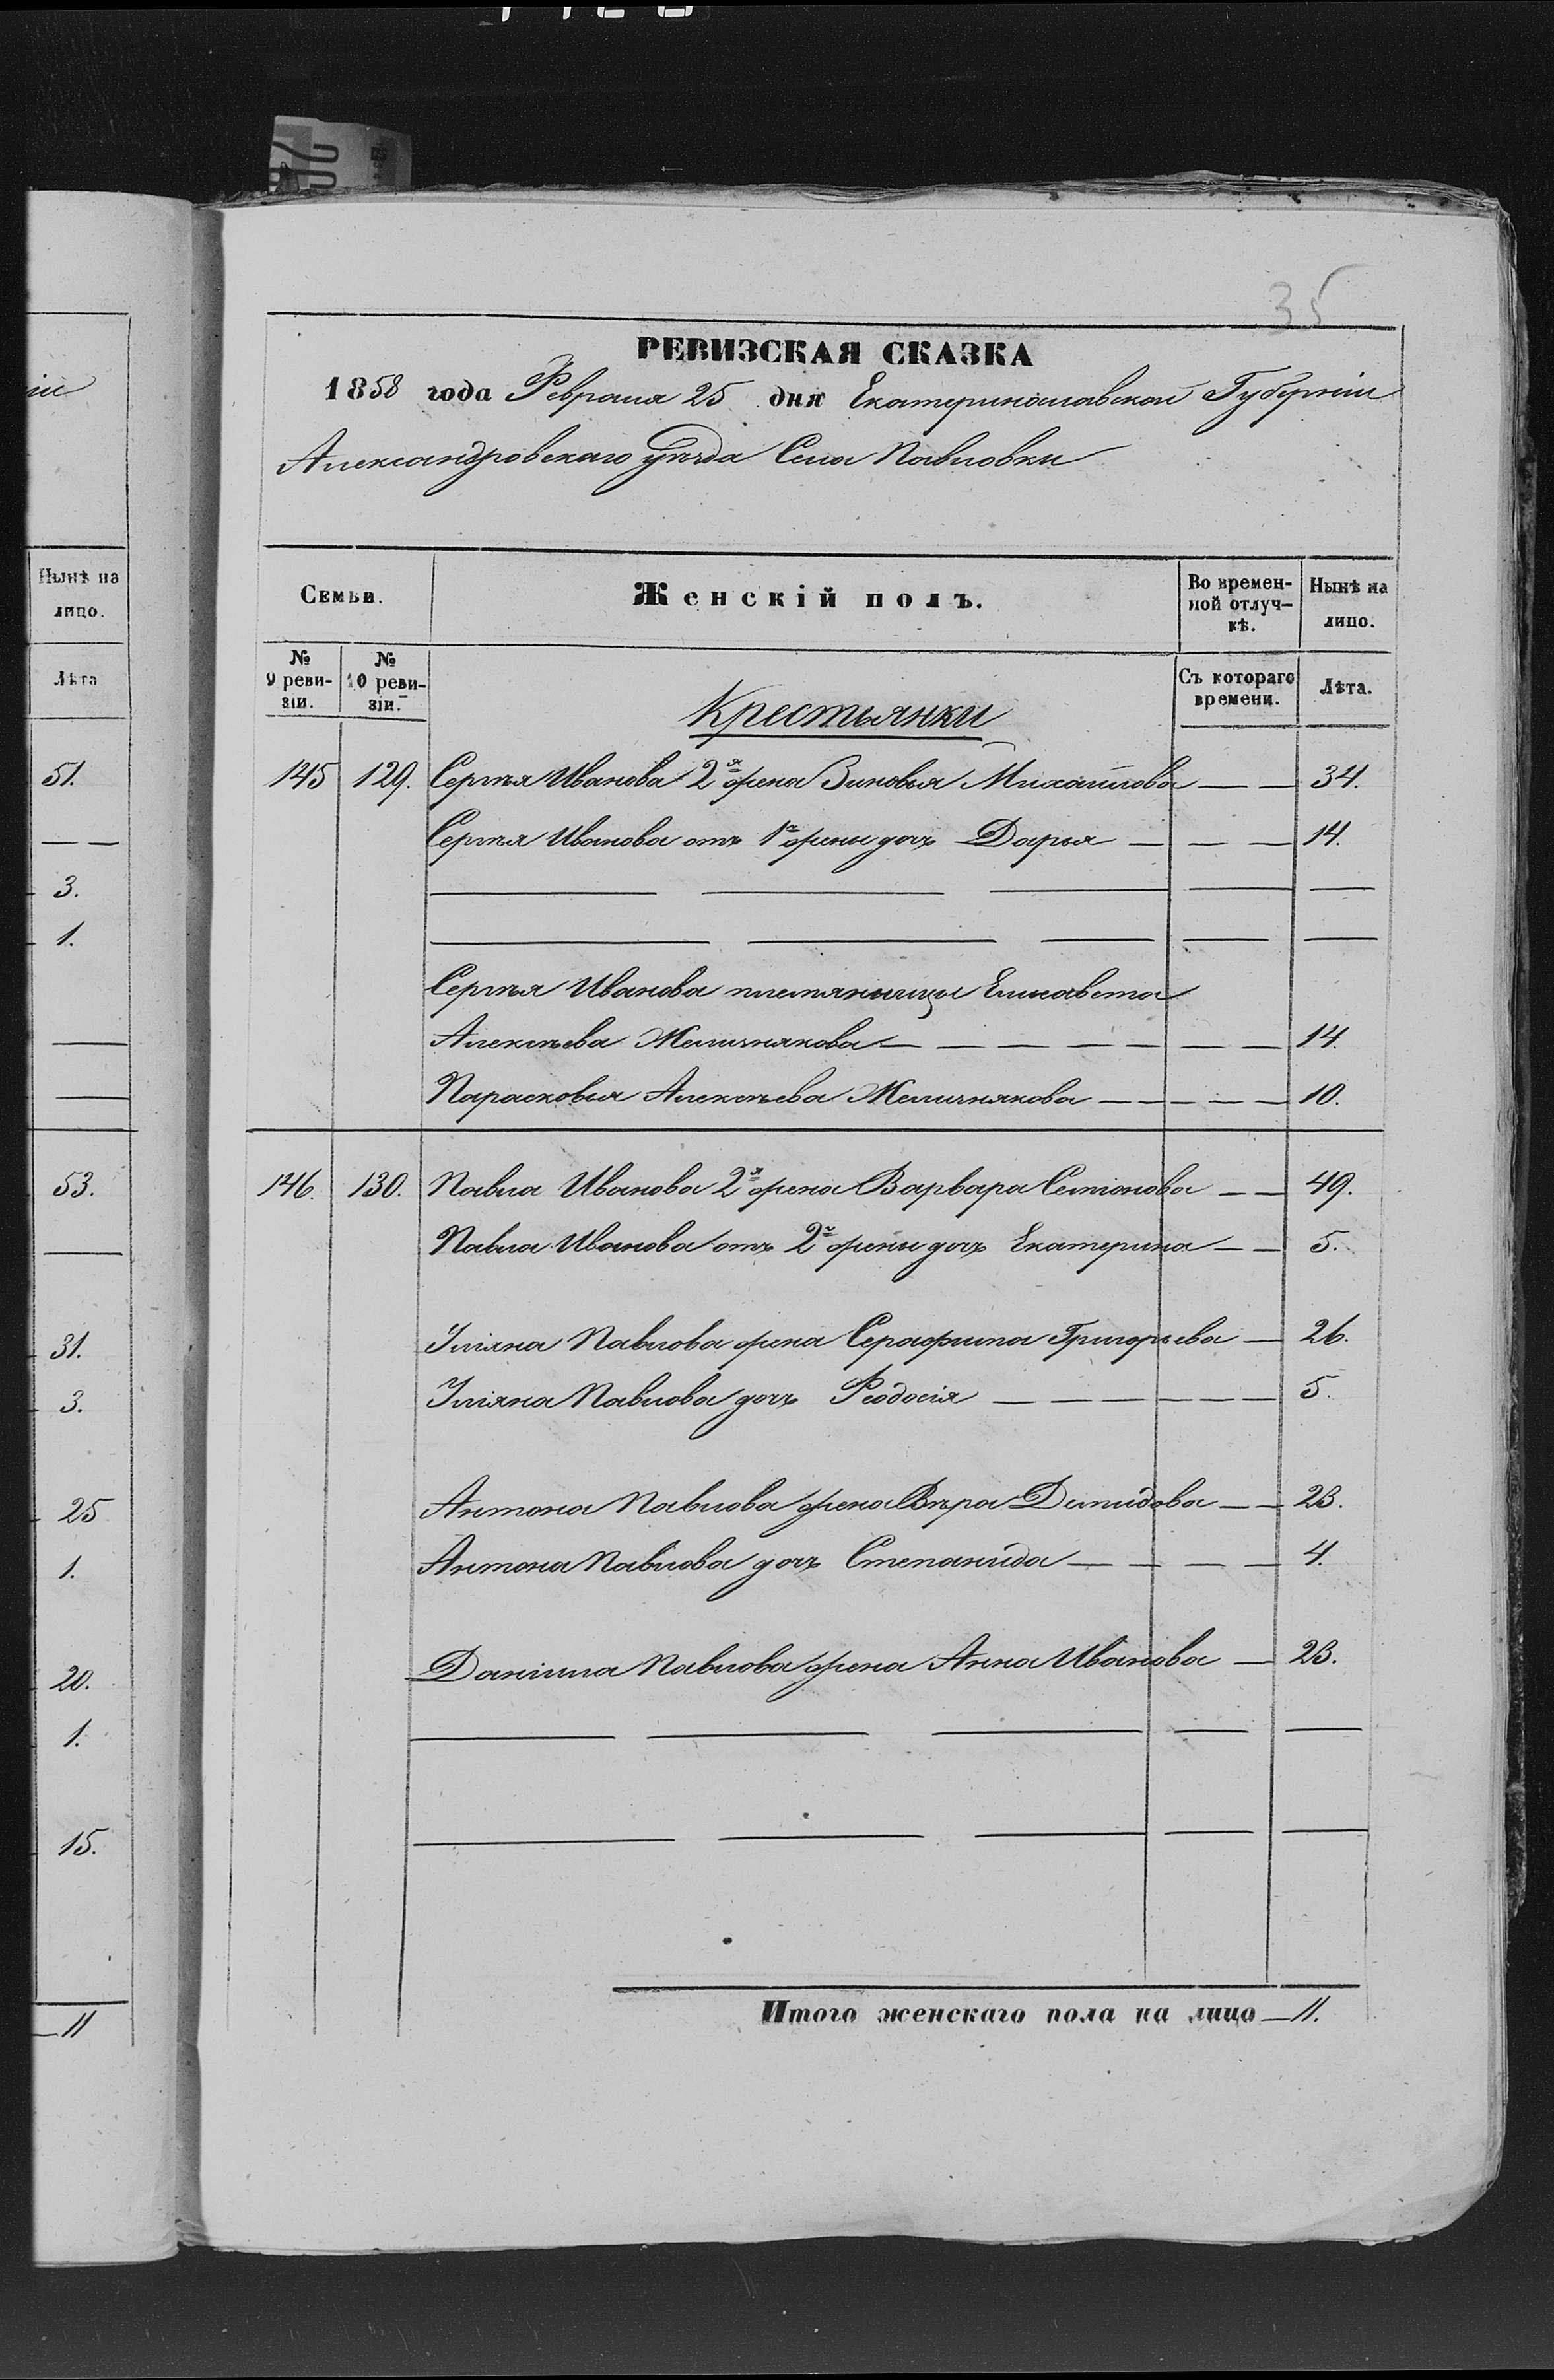 35
РЕВИЗСКАЯ СКАЗКА
1858 года Февраля 25 дня Екатеринославской Губерніи
Александровскаго уѣзда Села Павловки
Семьи.
Женскій полъ.
Во времен-
ной отлуч-
кѣ.
Нынѣ на
лицо.
№
9 реви-
зіи.
№
10 реви-
зіи.
Съ котораго
времени.
Лѣта.
Крестьянки
145 129. Сергѣя Иванова 2я жена Зиновья Михайлова — — 34.
Сергѣя Иванова отъ 1й жены дочь Дарья — — — 14.
Сергѣя Иванова племянницы Елисавета
Алексѣева Мельникова — — — — — — — 14.
Парасковья Алексѣева Мельникова — — — — — 10.
146. 130. Павла Иванова 2я жена Варвара Семіонова — — 49.
Павла Иванова отъ 2й жены дочь Екатерина — — 5.
Иліяна Павлова жена Серафима Григорьева — 26.
Иліяна Павлова дочь Феодосія — — — — — — 5.
Антона Павлова жена Вѣра Демидова — — 23.
Антона Павлова дочь Степанида — — — — 4.
Даніила Павлова жена Анна Иванова — 23.
Итого женскаго пола на лицо — 11.
іи
Нынѣ на
лицо.
Лѣта
51.
3.
1.
53.
31.
3.
25
1.
20.
1.
15.
11